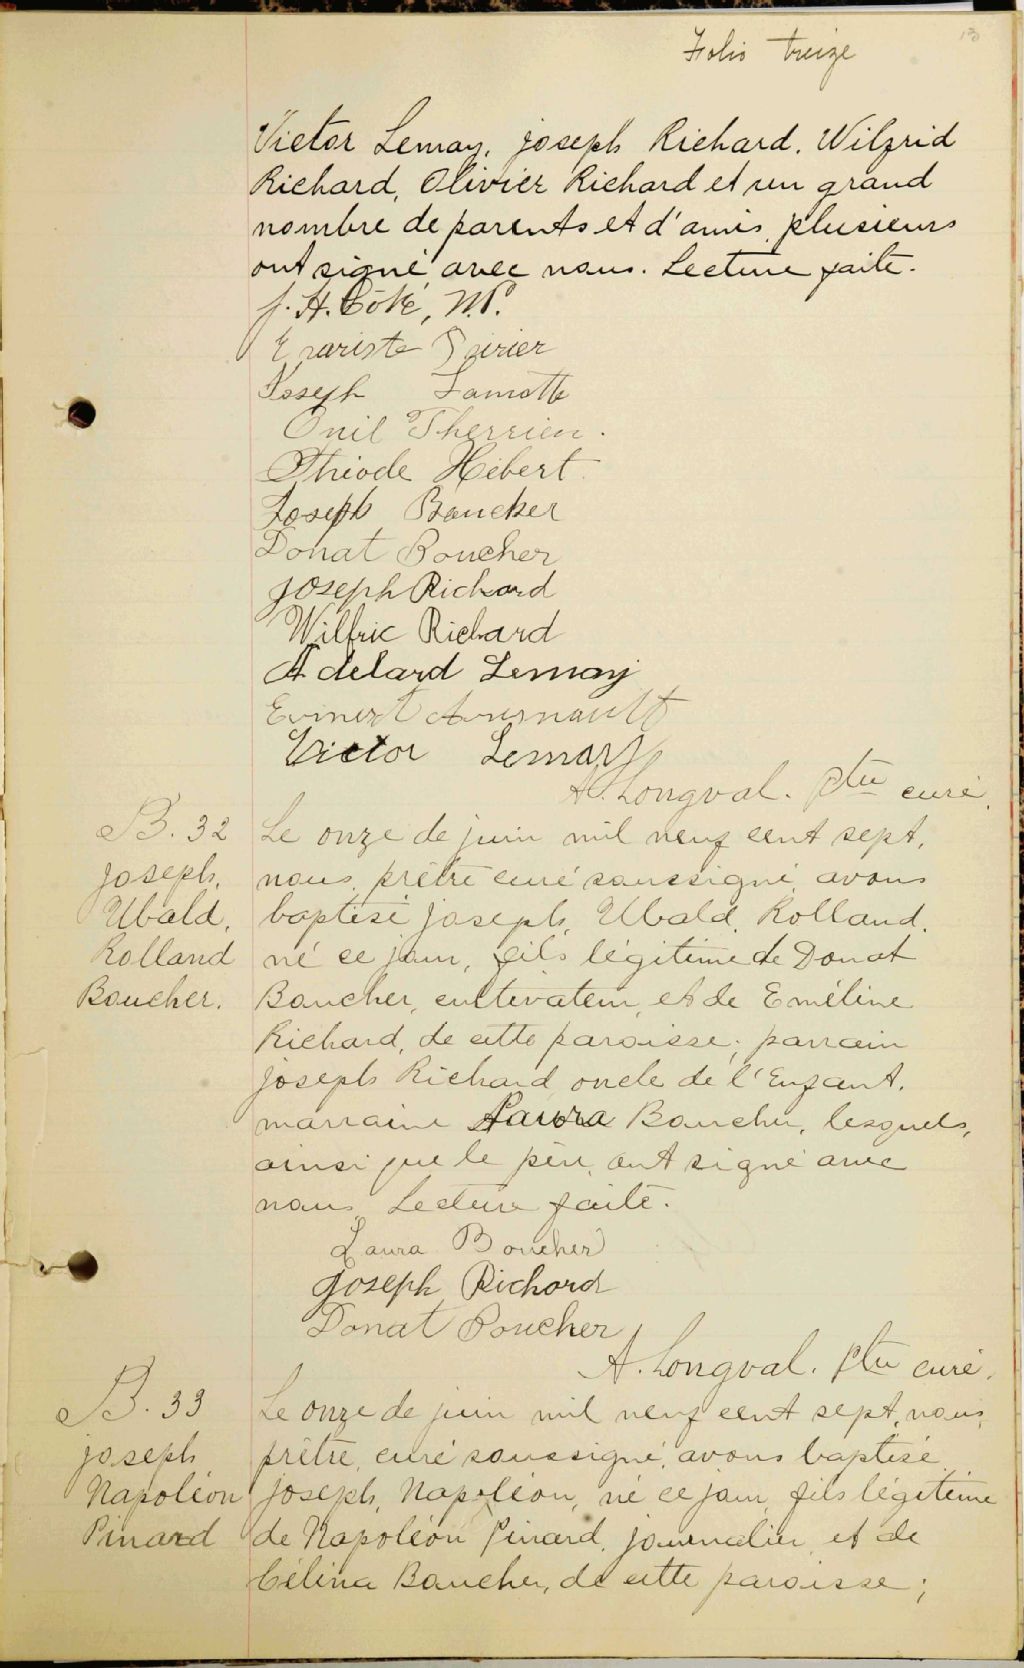 13
Folio treize
Victor Lemay, joseph Richard, Wilfrid
Richard, Olivier Richard et un grand
nombre de parents et d'amis, plusieurs
ont signé avec nous. Lecture faite.
J. H. Côté, N.P.
Evariste Poirier
Joseph Lamotte
Onil Therrien.
Joseph Boucher
Donat Boucher
Joseph Richard
Wilfric Richard
Adelard Lemay
Victor Lemay
A. Longval. Ptre curé.
B. 32
joseph,
Ubald,
Rolland
Boucher.
Le onze de juin mil neuf cent sept,
nous, prêtre curé soussigné, avons
baptisé joseph, Ubald, Rolland,
né ce jour, fils légitime de Donat
Boucher, cultivateur, et de Eméline
Richard, de cette paroisse; parrain
joseph Richard oncle de l'Enfant,
marraine Laura Boucher, lesquels,
ainsi que le père, ont signé avec
nous. Lecture faite.
Laura Boucher
Joseph Richard
Donat Boucher
A. Longval. Ptre curé.
B. 33
joseph
Napoléon
Pinard
Le onze de juin mil neuf cent sept, nous,
prêtre, curé soussigné, avons baptisé
joseph, Napoléon, né ce jour, fils légitime
de Napoléon Pinard, journalier, et de
Célina Boucher, de cette paroisse;